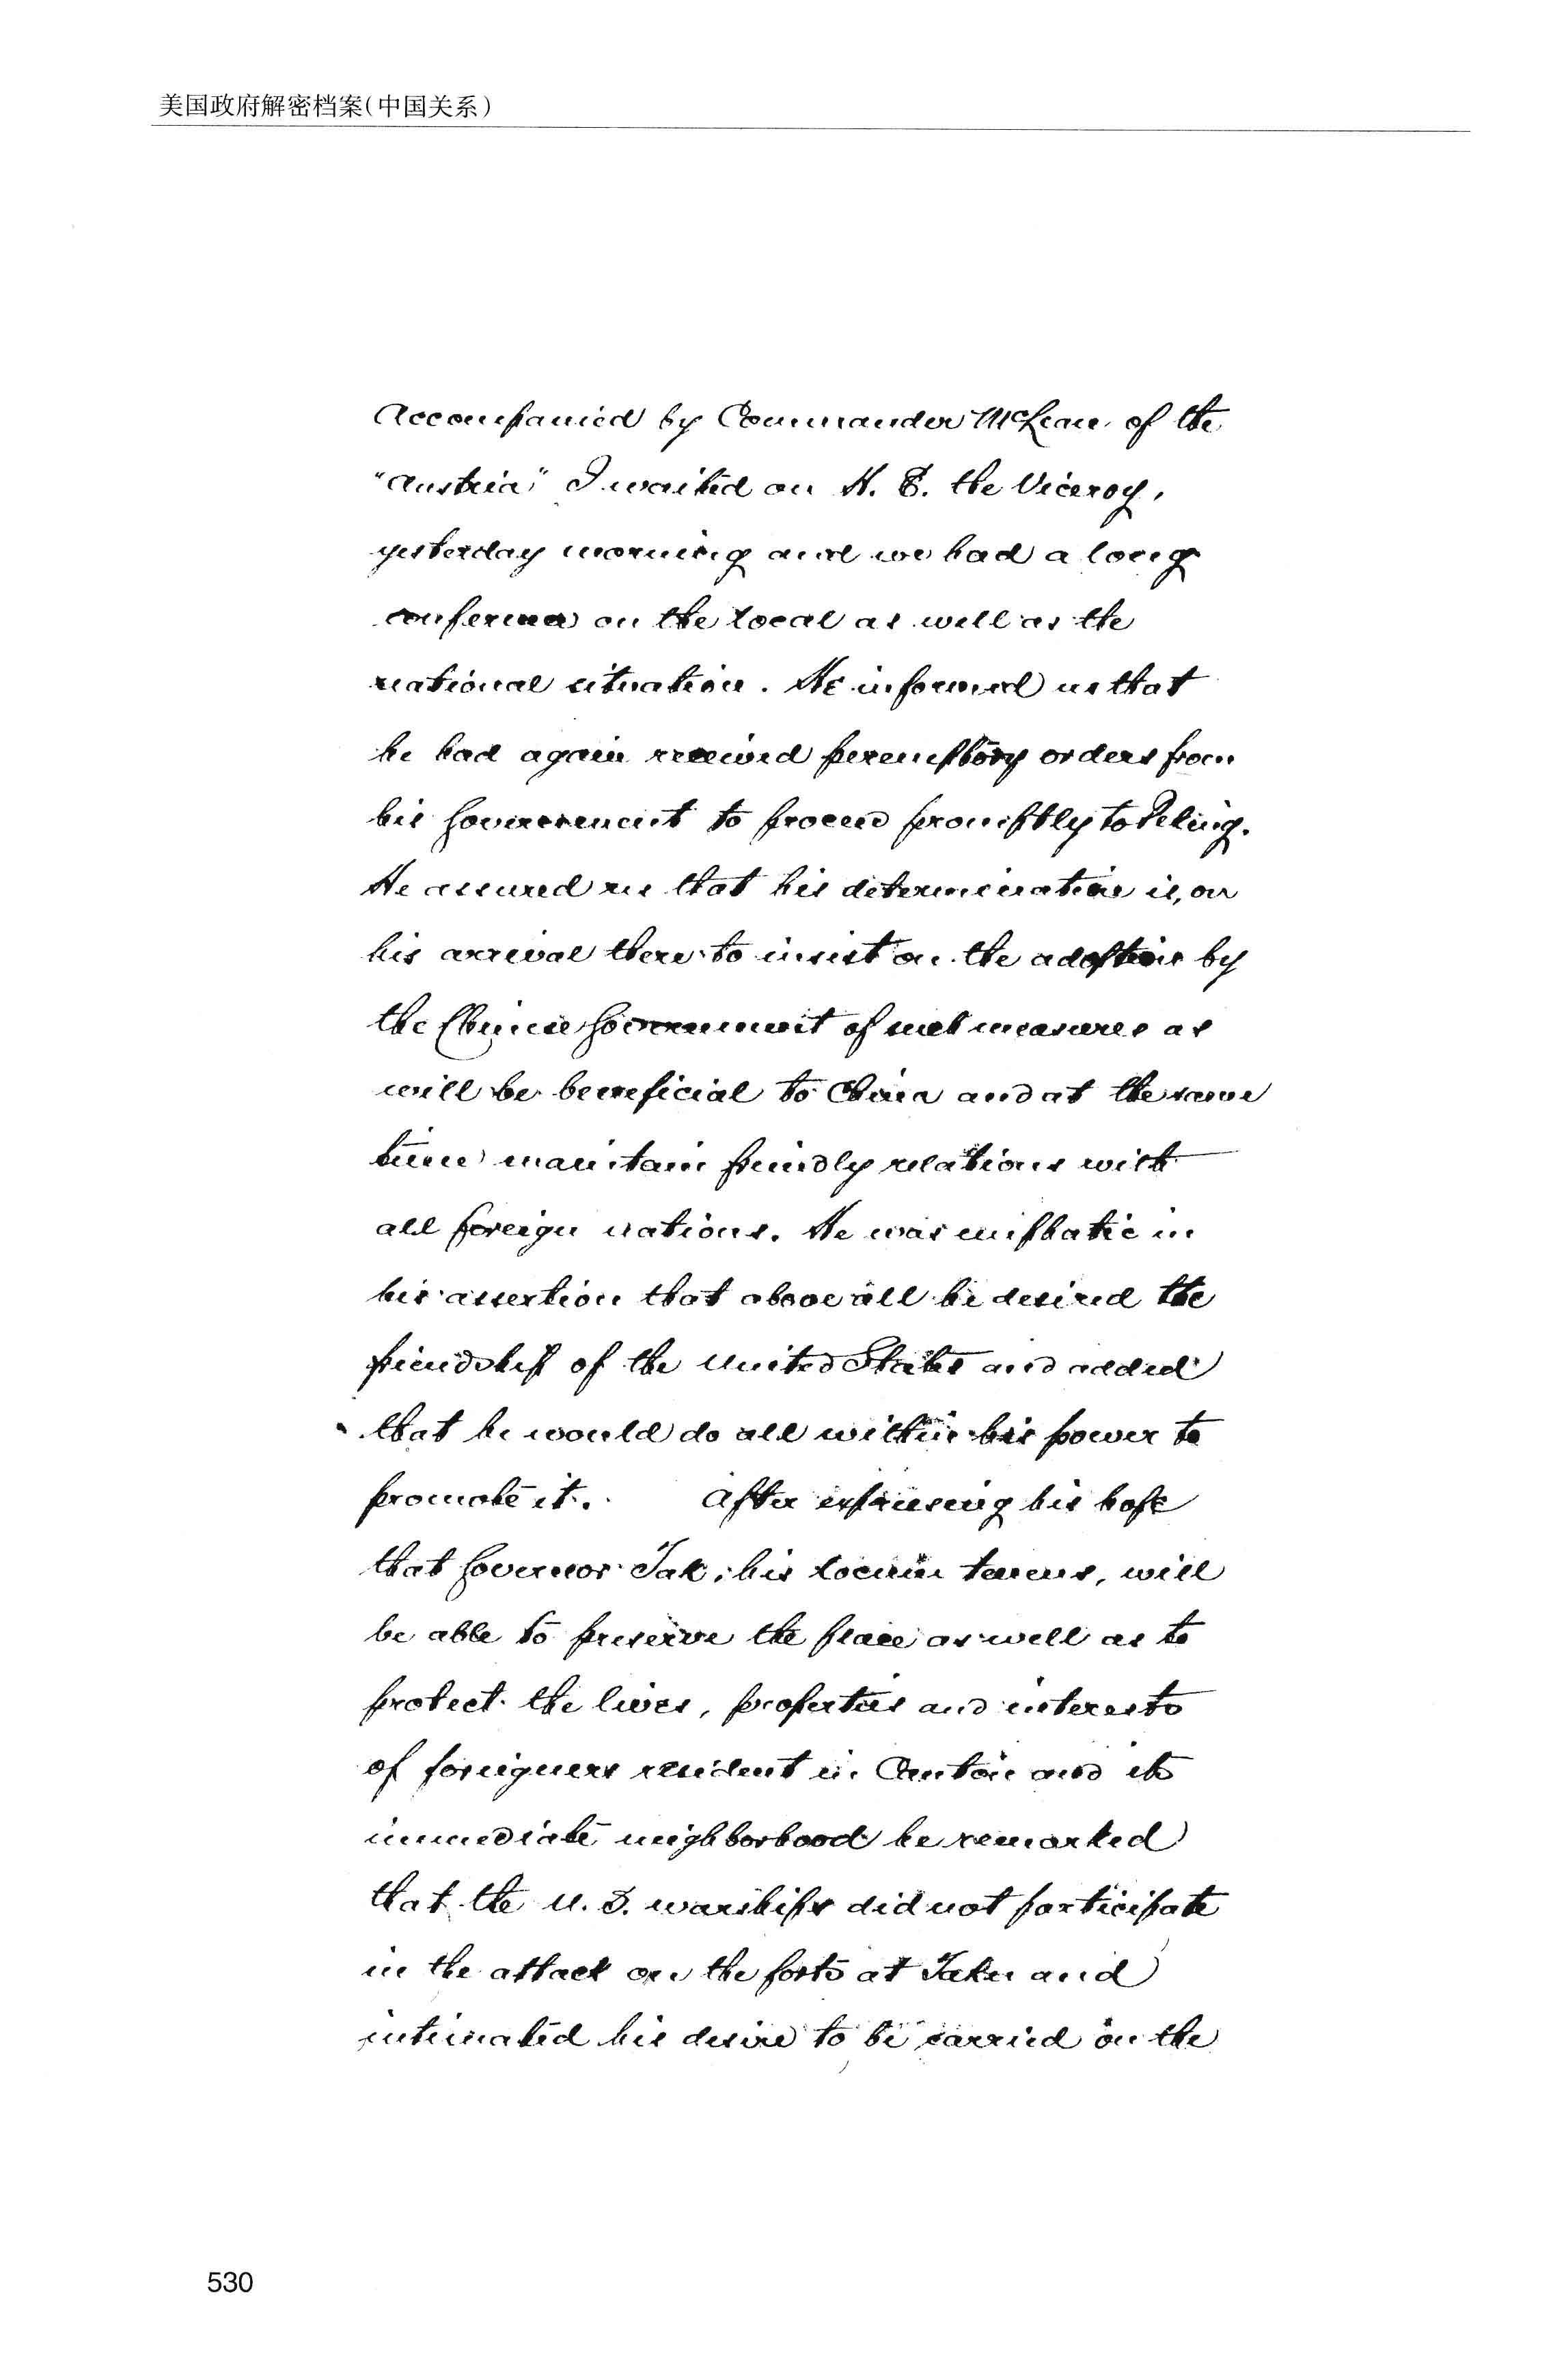 美国政府解密档案(中国关系)
Accompanied by Commander McLean of the
"Austria," I waited on H. E. the Viceroy,
yesterday morning and we had a long
conference on the local as well as the
national situation. He informed us that
he had again received peremptory orders from
his Government to proceed promptly to Peking.
He assured us that his determination is, on
his arrival there to insist on the adoption by
the Chinese Government of such measures as
will be beneficial to China and at the same
time maintain friendly relations with
all foreign nations. He was emphatic in
his assertion that above all he desired the
friendship of the United States and added
that he would do all within his power to
promote it. After expressing his hope
that Governor Tak, his locum tenens, will
be able to preserve the peace as well as to
protect the lives, properties and interests
of foreigners resident in Canton and its
immediate neighborhood he remarked
that the U. S. warships did not participate
in the attack on the forts at Taku and
intimated his desire to be carried on the
530